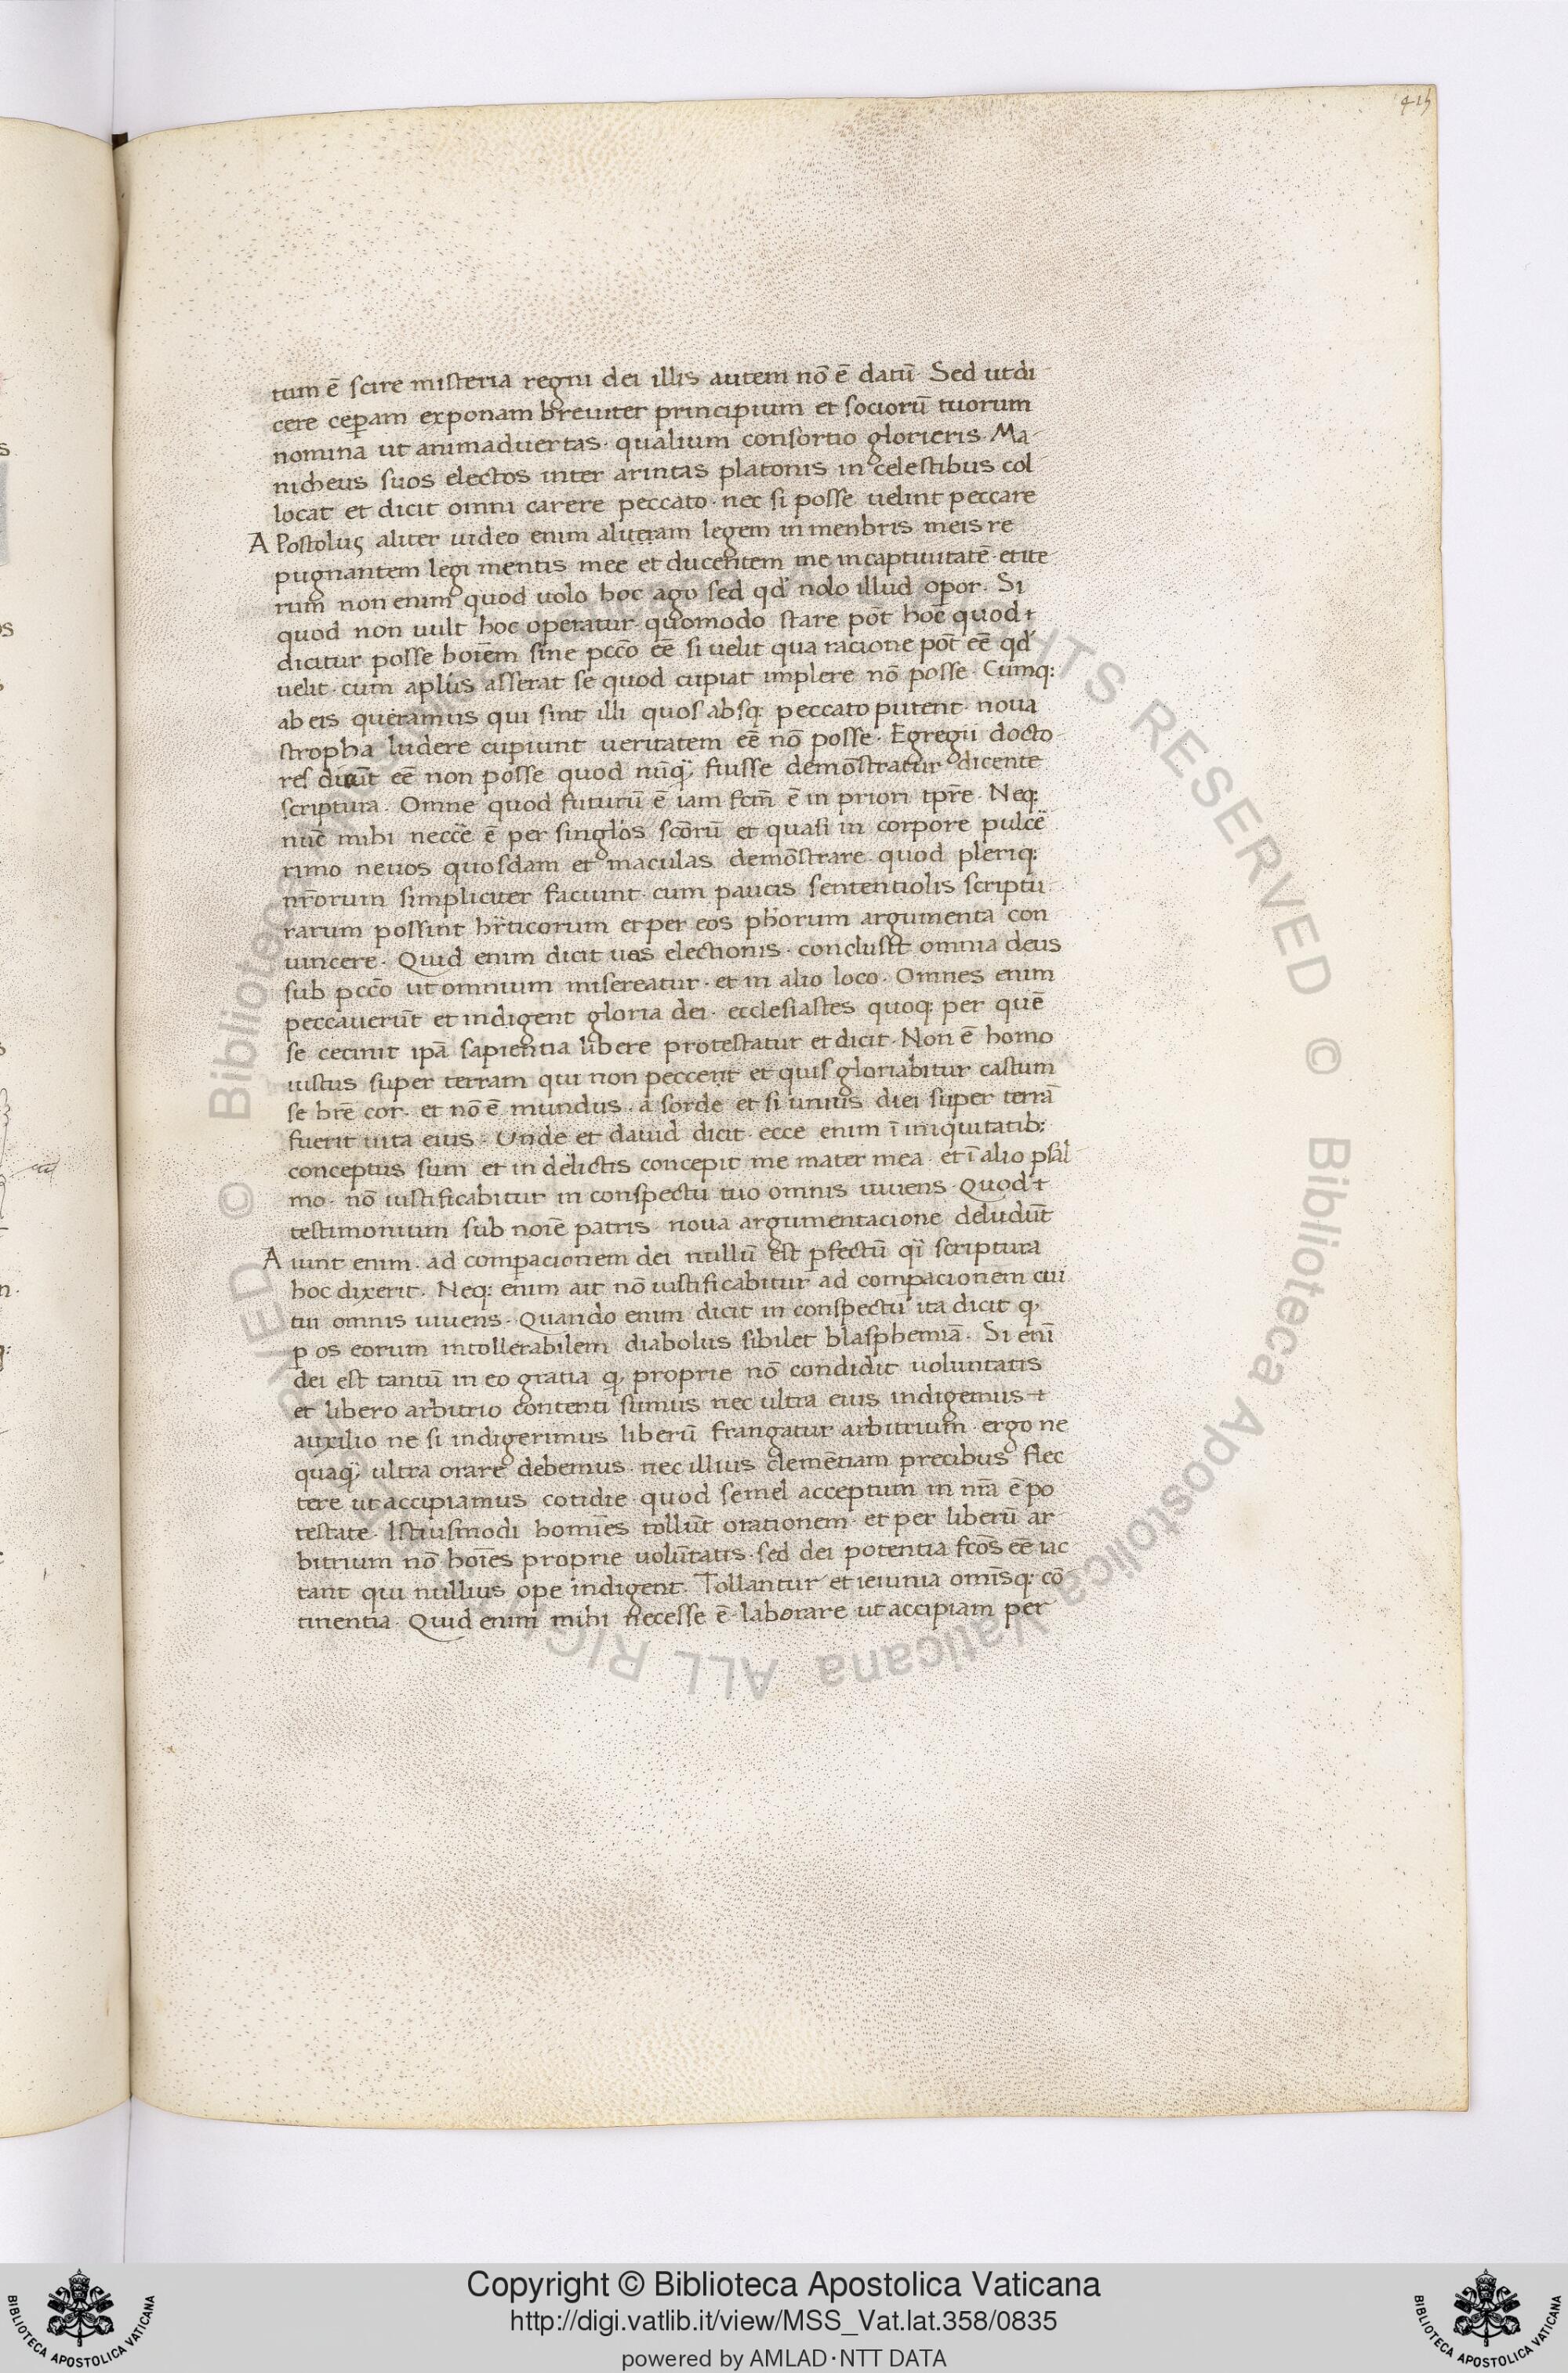 415
tum ē scire misteria regni dei illis autem nō ē datū. Sed ut di
cere ceꝑam exponam breuiter principium et socioꝛū tuorum
nomina ut animaduertas. qualium consortio glorieris. Ma-
nicheus suos electos inter arintas platonis in celestibus col
locat et dicit omni carere peccato. nec si posse uelint peccare
APostolus aliter uideo enim aliteram legem in menbris meis re
pugnantem legi mentis mee et ducentem me in captiuitatē. et ite
rum non enim quod uolo hoc ago sed qd' nolo illud opor. Si
quod non uult hoc operatur. quomodo stare pōt hoc̄ quod
dicitur posse hoīem sine pccō eē si uelit qua racione pōt eē qd'
uelit. cum aplus asserat se quod cupiat implere nō posse. Cumq:
ab eis queramus qui sint illi quos absq: peccato putent. noua
stropha ludere cupiunt ueritatem eē nō posse. Egregii docto
res dicūt eē non posse quod nūq̄ fuisse demōstratur dicente
scriptura. Omne quod futurū ē iam fcm̄ ē in priori tpr̄e. Neq:
nūc mihi neccē ē per singlos scōrū et quasi in corpore pulce
rimo neuos quosdam et maculas demōstrare. quod pleriq:
nr̄orum simpliciter faciunt. cum paucis sententiolis scriptu
rarum possint hr̄ticorum et per eos ph̄orum argumenta con
uincere. Quid enim dicit uas electionis. conclusit omnia deus
sub pccō ut omnium misereatur. et in alio loco. Omnes enim
peccauerūt et indigent gloria dei. ecclesiastes quoq: per quē
se cecinit ipā sapientia libere protestatur et dicit. Non ē homo
iustus super terram qui non peccent et quis gloriabitur castum
se hr̄e cor. et nō ē mundus. a sorde et si unius diei super terrā
fuerit uita eius. Unde et dauid dicit. ecce enim ī iniquitatib:
conceptus sum et in delictis concepit me mater mea. et ī alio psal
mo. nō iustificabitur in conspectu tuo omnis uiuens. Quod
testimonium sub noīe patris. noua argumentacione deludūt
Aiunt enim. ad comꝑacionem dei nullū est ꝑfectū qi scriptura
hoc dixerit. Neq: enim ait nō iustificabitur ad comꝑacionem cui
tui omnis uiuens. Quando enim dicit in conspectu ita dicit q,
ꝑ os eorum intollerabilem diabolus sibilet blasphemiā. Si enī
dei est tantū in eo gratia q, proprie nō condidit uoluntatis
et libero arbitrio contenti sumus nec ultra eius indigemus
auxilio ne si indigerimus liberū frangatur arbitrium. ergo ne
quaq̄ ultra orare debemus. nec illius clemētiam precibus flec
tere ut accipiamus cotidie quod semel acceptum in nr̄a ē po
testate. Istiusmodi homīes tollūt orationem. et per liberū ar
bitrium nō hoīes proprie uolūtatis. sed dei potentia fcōs eē iac
tant qui nullius ope indigent. Tollantur et ieiunia omīsq: cō
tinentia. Quid enim mihi necesse ē laborare ut accipiam per
Copyright © Biblioteca Apostolica Vaticana
http://digi.vatlib.it/view/MSS_Vat.lat.358/0835
powered by AMLAD·NTT DATA